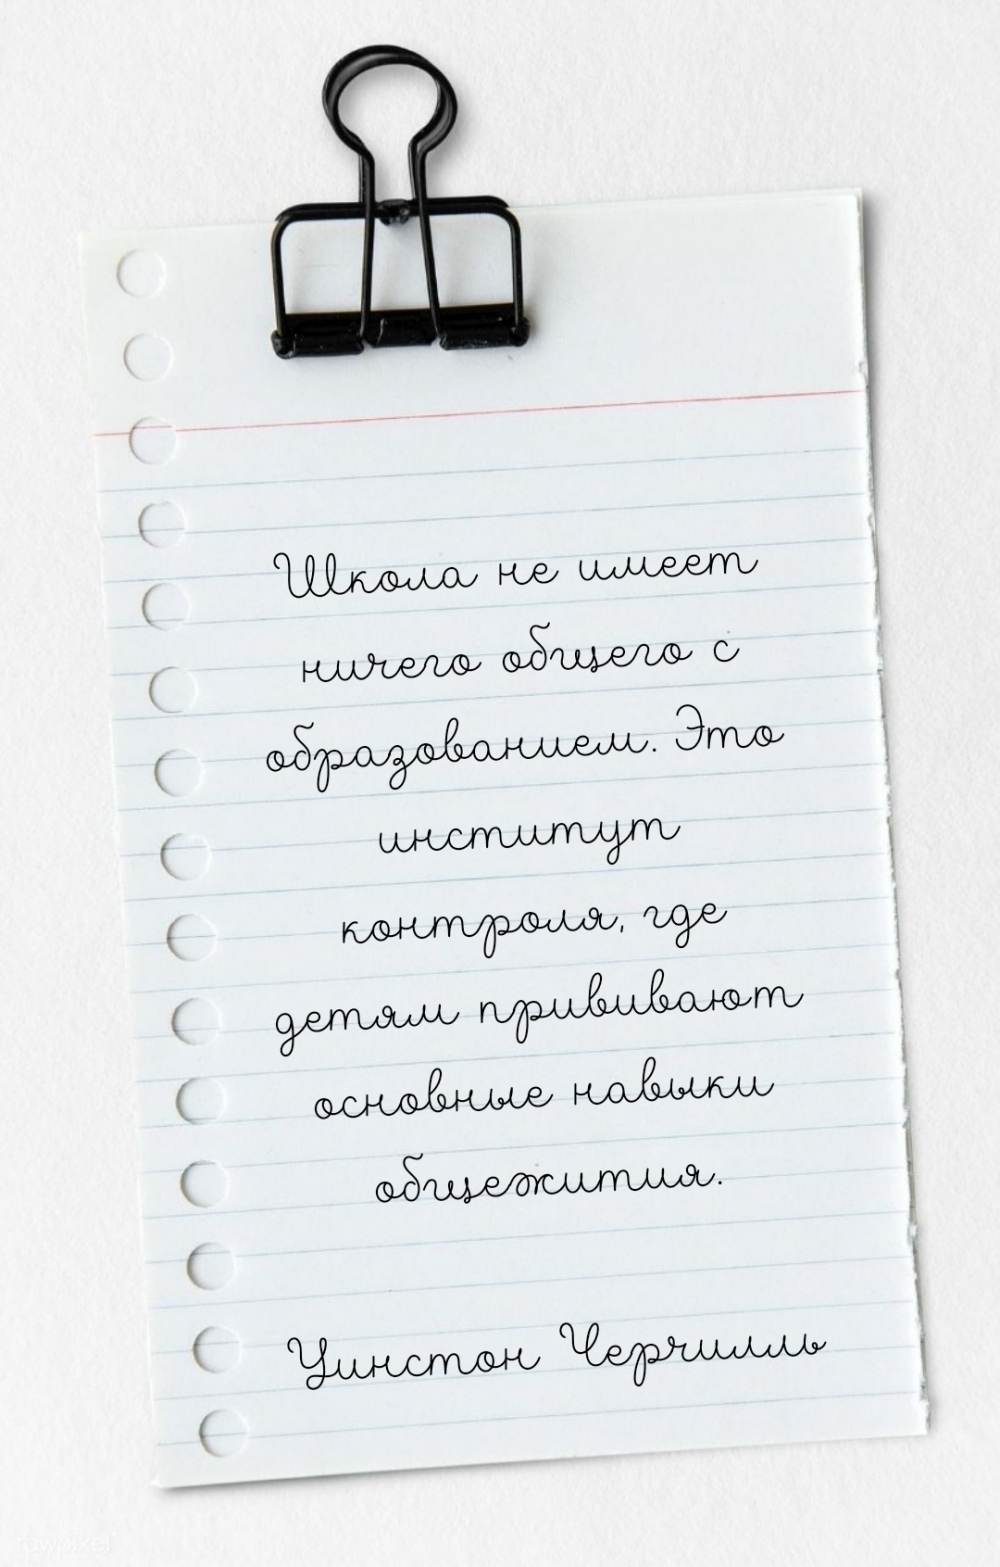 Школа не имеет
ничего общего с
образованием. Это
институт
контроля, где
детям прививают
основные навыки
общежития.
Уинстон Черчилль